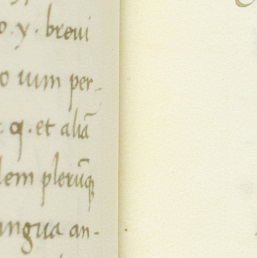 o .y. breui
o uim per-
q. et aliā
dem plerūq;
ingua an-